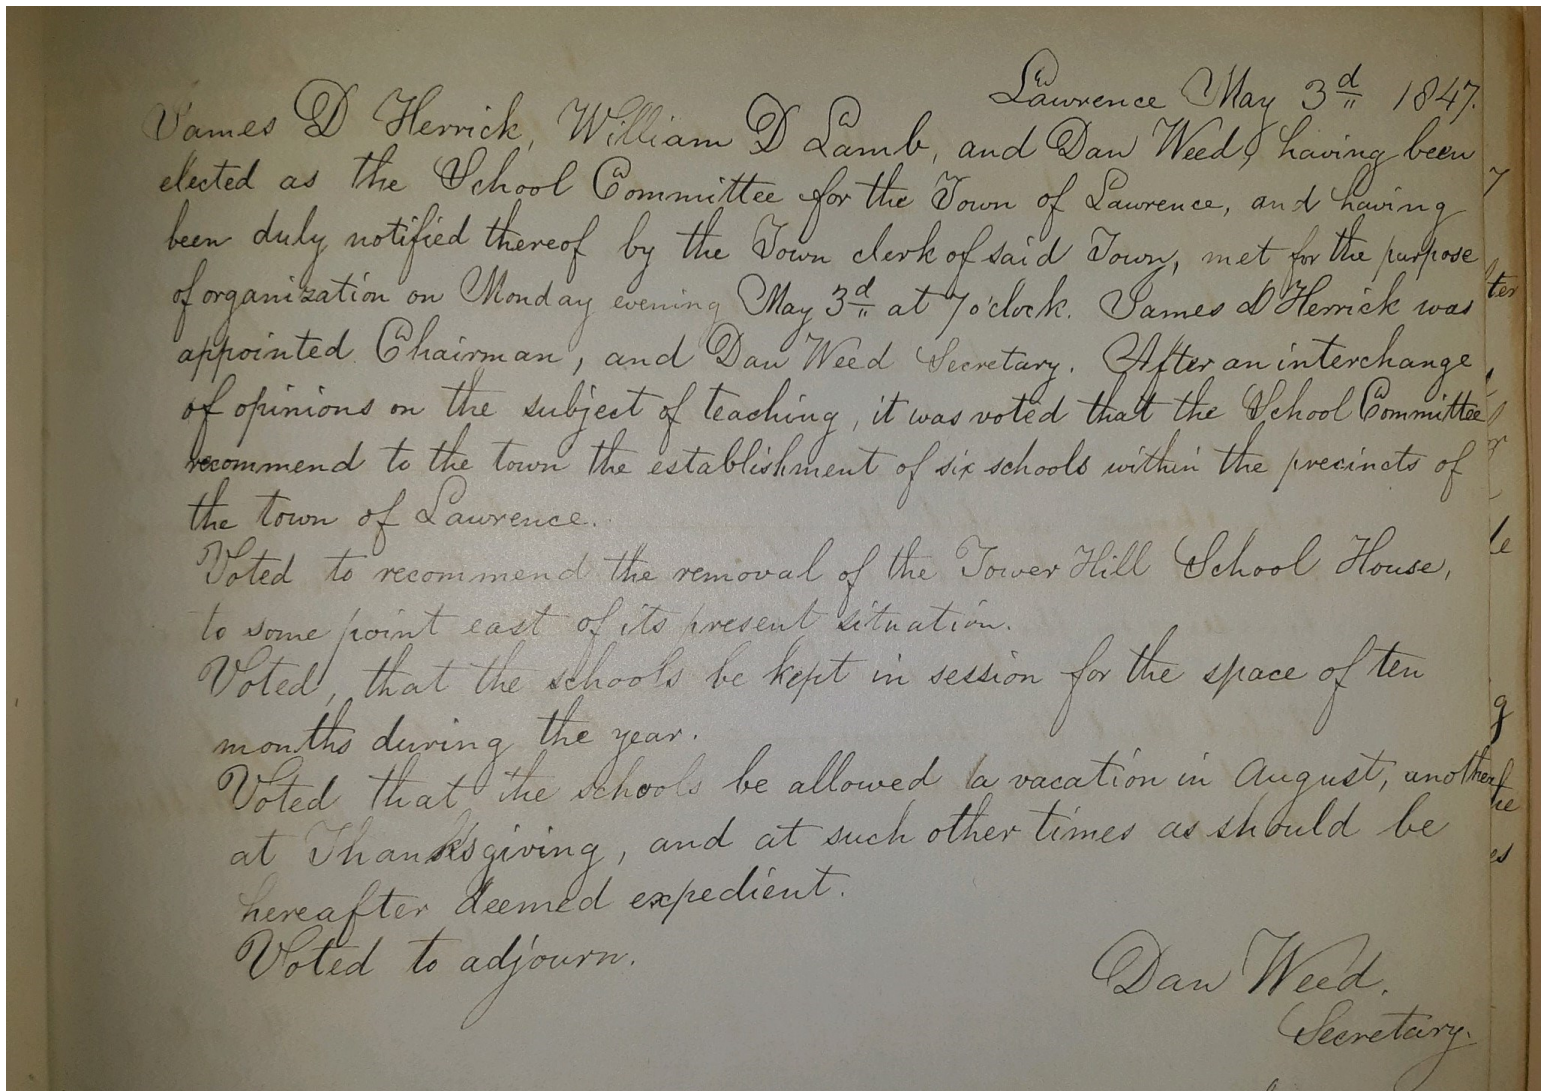 Lawrence May 3d 1847.
James D Herrick, William D Lamb, and Dan Weed, having been
elected as the School Committee for the Town of Lawrence, and having
been duly notified thereof by the Town clerk of said Town, met for the purpose
of organization on Monday evening May 3d at 7 o'clock. James D Herrick was
appointed Chairman, and Dan Weed Secretary. After an interchange
of opinions on the subject of teaching, it was voted that the School Committee
recommend to the town the establishment of six schools within the precincts of
the town of Lawrence.
Voted to recommend the removal of the Tower Hill School House,
to some point east of its present situation.
Voted, that the schools be kept in session for the space of ten
months during the year.
Voted that the schools be allowed a vacation in August, another
at Thanksgiving, and at such other times as should be
hereafter deemed expedient.
Voted to adjourn.
Dan Weed.
Secretary.